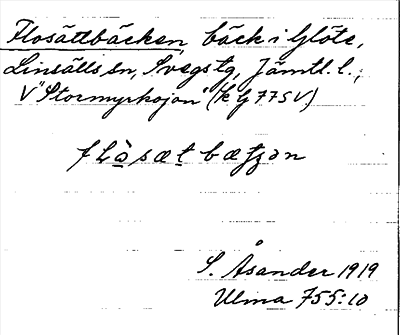 Flosättbäcken, bäck i Glöte,
Linsälls sn, Svegs tg, Jämtl. l.,
V "Stormyrkojan" (K G 775 V.)
f L ò s æ t b æ t ʃ ə n
S. Åsander 1919
Ulma 755:10